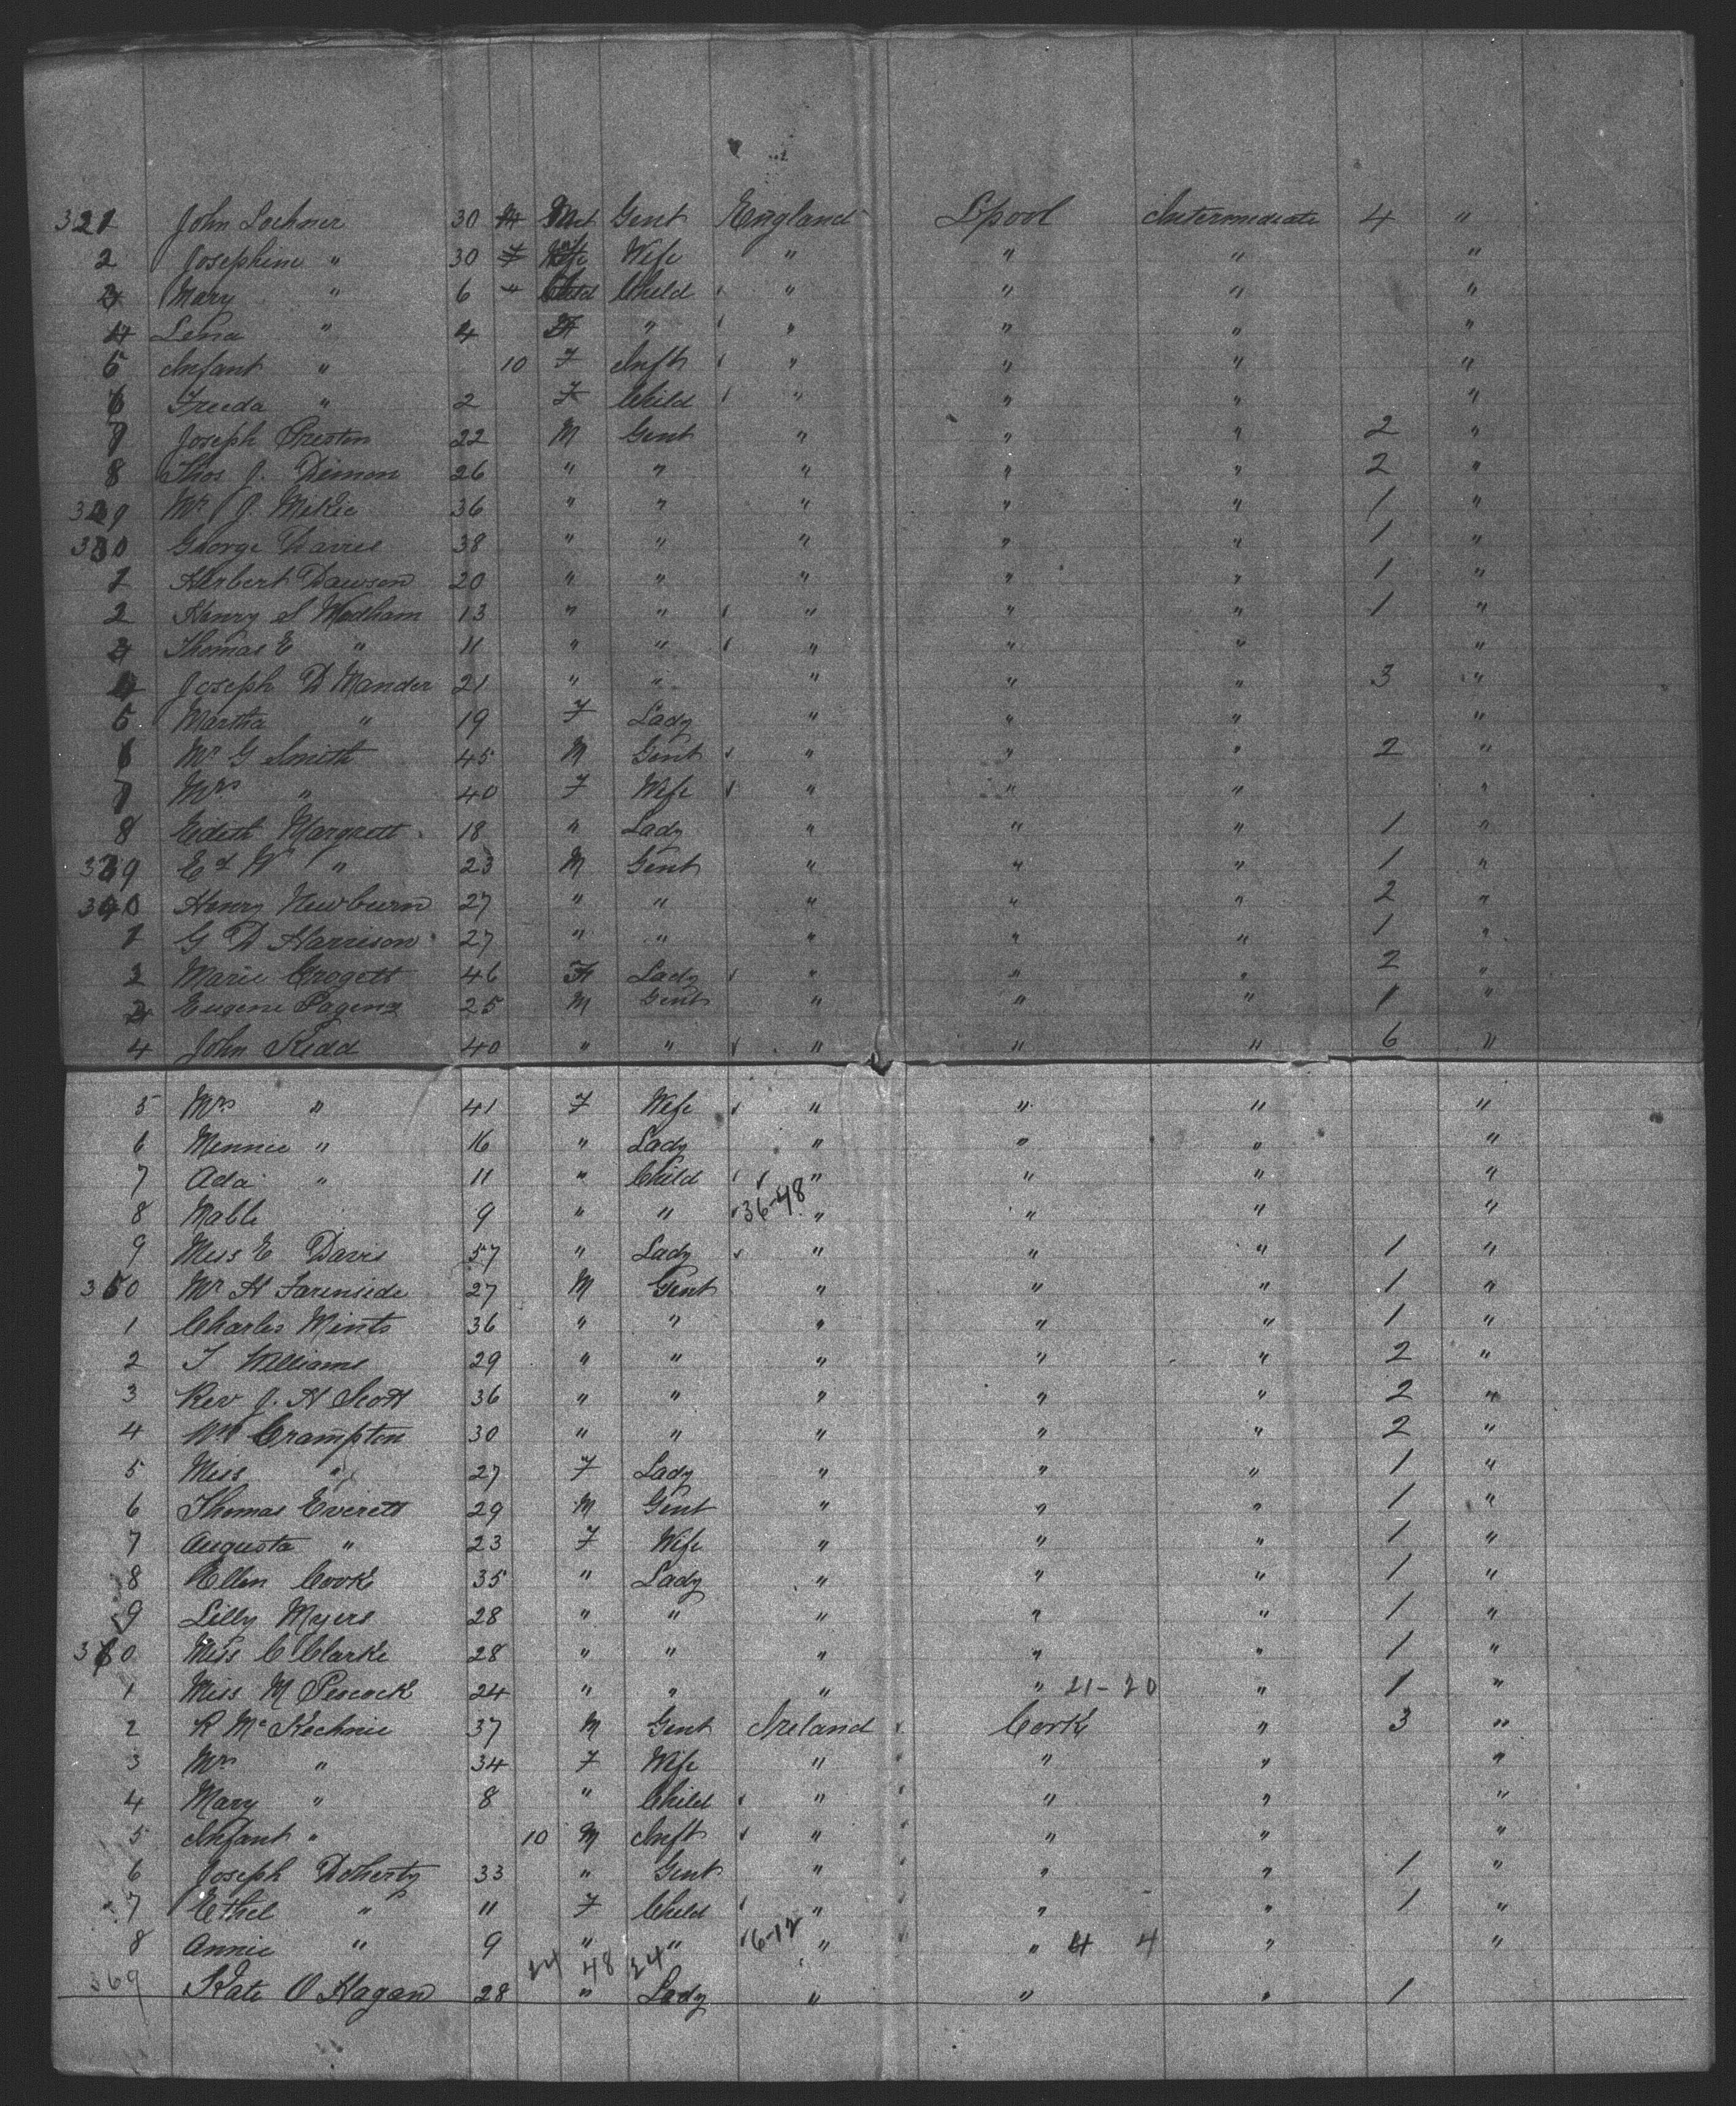 321 John Lochner 30 M Gent England Lpool Intermediate 4 "
2 Josephine " 30 F Wife " " " "
3 Mary " 6 Child " " " "
4 Lena " 4 F " " " " "
5 Infant " 10 F Inft " " " "
6 Freeda " 2 F Child " " " "
7 Joseph Preston 22 M Gent " " " 2 "
8 Thos J. Dimon 26 " " " " " 2 "
329 Mr J. McKie 36 " " " " " 1 "
330 George Davies 38 " " " " " 1 "
1 Herbert Dawson 20 " " " " " 1 "
2 Henry S Wodham 13 " " " " " 1 "
3 Thomas E " 11 " " " " " "
4 Joseph D Mander 21 " " " " " 3 "
5 Martha " 19 F Lady " " " "
6 Mr G Smith 45 M Gent " " " 2 "
7 Mrs " 40 F Wife " " " "
8 Edith Margrett 18 " Lady " " " 1 "
339 Ed W " 23 M Gent " " " 1 "
340 Henry Newburn 27 " " " " " 2 "
1 G D Harrison 27 " " " " " 1 "
2 Marie Crogett 46 F Lady " " " 2 "
3 Eugene 25 M Gent " " " 1 "
4 John Kidd 40 " " " " " 6 "
5 Mrs " 41 F Wife " " " "
6 Minnie " 16 " Lady " " " "
7 Ada " 11 " Child " " " "
8 Mable 9 " " 36-48 " " " "
9 Miss E Davis 57 " Lady " " " 1 "
350 Mr H Farinside 27 M Gent " " " 1 "
1 Charles Mints 36 " " " " " 1 "
2 T Williams 29 " " " " " 2 "
3 Rev J. H Scott 36 " " " " " 2 "
4 Mr Crampton 30 " " " " " 2 "
5 Miss " 27 F Lady " " " 1 "
6 Thomas Everett 29 M Gent " " " 1 "
7 Augusta " 23 F Wife " " " 1 "
8 Ellen Cook 35 " Lady " " " 1 "
9 Lilly Myers 28 " " " " " 1 "
360 Miss C Clarke 28 " " " " " 1 "
1 Miss M Peocock 24 " " " " 21-20 " 1 "
2 R McKechnie 37 M Gent Ireland Cork " 3 "
3 Mrs " 34 F Wife " " " "
4 Mary " 8 " Child " " " "
5 Infant " 10 M Inft " " " "
6 Joseph Doherty 33 " Gent " " " 1 "
7 Ethel " 11 F Child " " " 1 "
8 Annie " 9 " " 6-12 " " 4 4 " "
24 48 24
369 Kate O Hagan 28 " Lady " " " 1